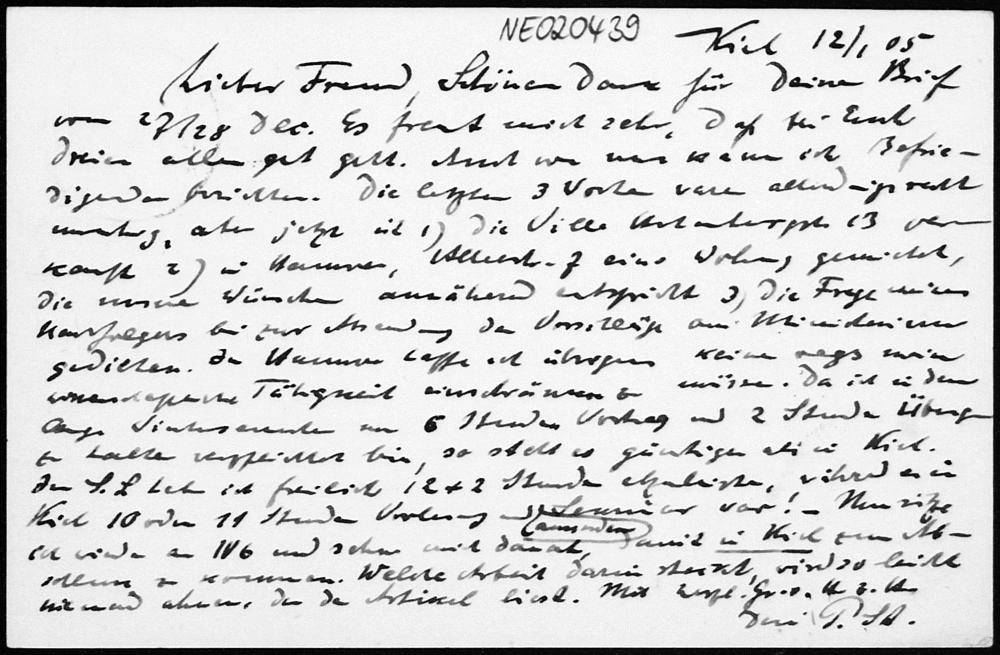 NE020439
Kiel 12/1 05
Lieber Freund, Schönen Dank für Deinen Brief
vom 27/28 Dec. Es freut mich sehr, daß es Euch
dreien allen gut geht. Auch von uns kann ich Befrie-
digendes berichten. Die letzten 3 Wochen waren allerdings recht
unruhig, aber jetzt ist 1) die Villa 13 ver-
kauft 2) in Hannover, 7 eine Wohnung gemietet,
die unseren Wünschen annähernd entspricht 3) die Frage meines
Nachfolgers bis zur Absendung der Vorschläge ans Ministerium
gediehen. In Hannover hoffe ich übrigens keineswegs meine
wissenschaftliche Tätigkeit einschränken zu müssen. Da ich in dem
Wintersemester nur 6 Stunden Vortrag und 2 Stunden Übungen
zu halten verpflichtet bin, so steht es günstiger als in Kiel.
Im S.S. habe ich freilich 12+2 Stunden, während es in
Kiel 10 oder 11 Stunden Vorlesung und Seminar war! – Nun sitze
(ausserdem)
ich wieder an IV6 und sehne mich danach, damit in Kiel zum Ab-
schluss zu kommen. Welche Arbeit darin steckt, wird so leicht
niemand ahnen, der den Artikel liest. Mit herzl. Gr. v. H. z. H.
Dein P. St.